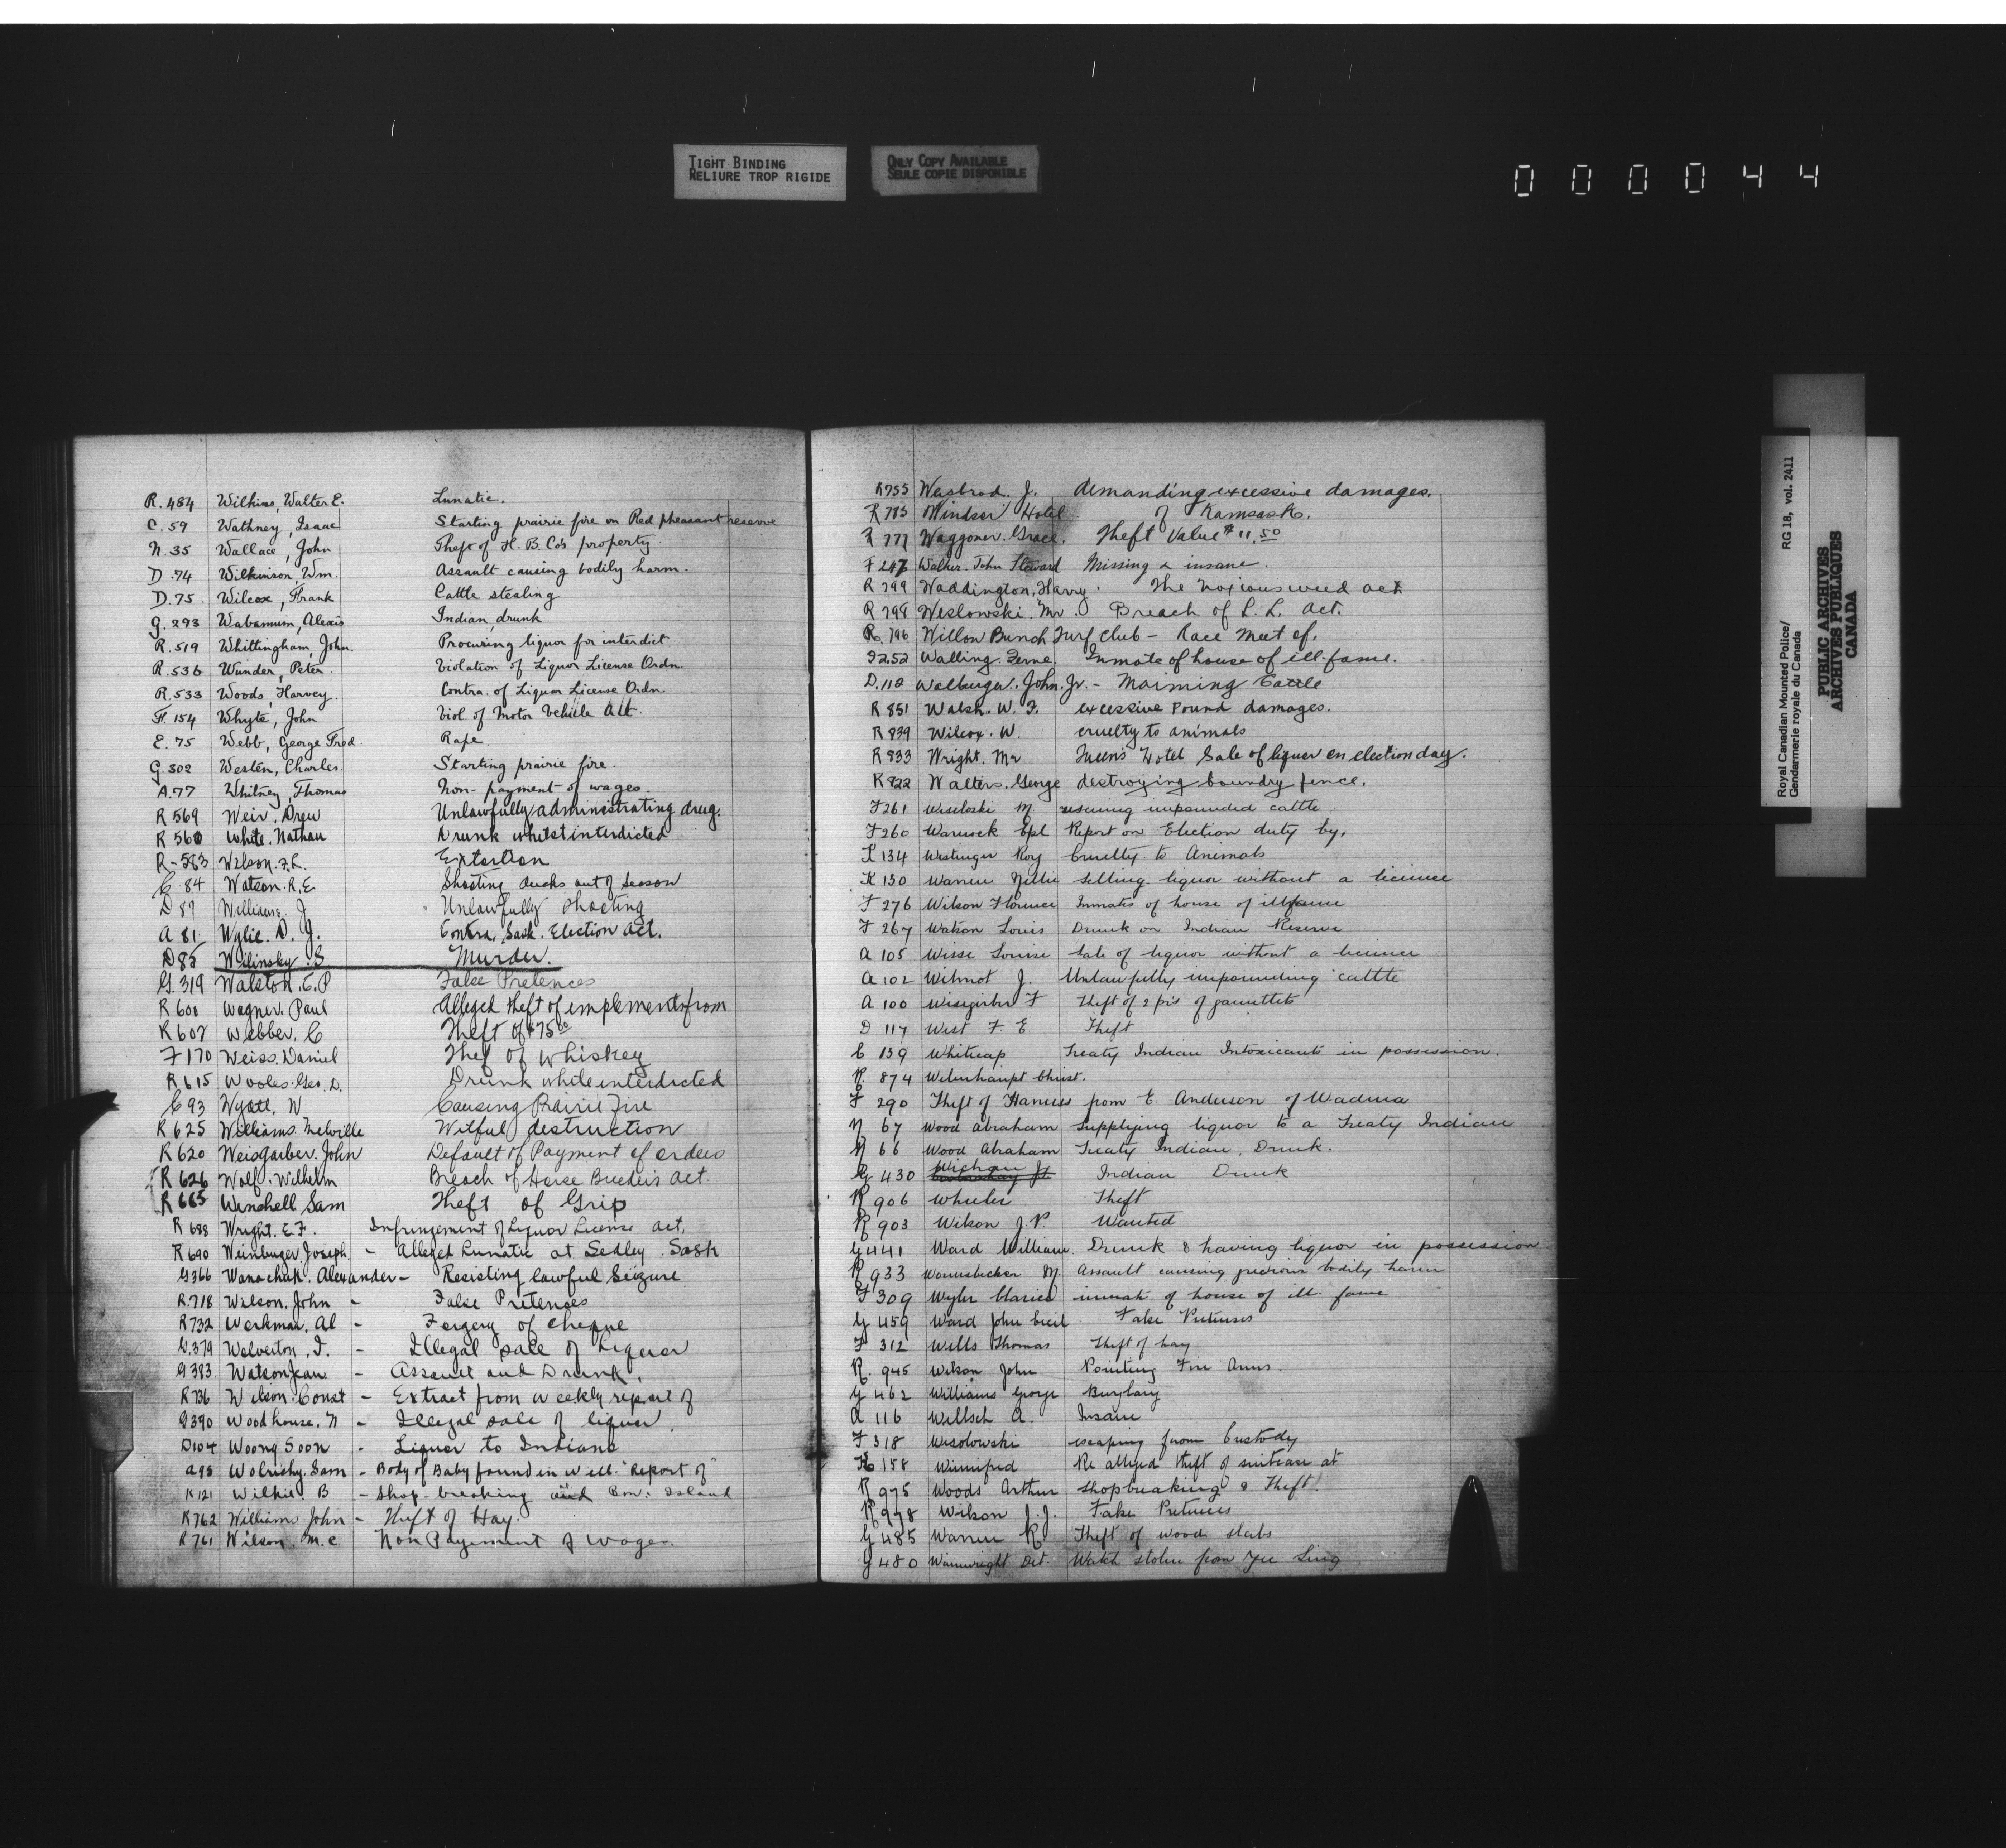 TIGHT BINDING
RELIURE TROP RIGIDE
ONLY COPY AVAILABLE
SEULE COPIE DISPONIBLE
000044
R.484 Wilkins, Walter E. Lunatic.
C.59 Wathney, Isaac Starting prairie fire on Red pheasant reserve
N.35 Wallace, John Theft of H.B.Co's property.
D.74 Wilkinson, Wm. Assault causing bodily harm.
D.75. Wilcox, Frank Cattle stealing
G.293 Wabamum, Alexis Indian, drunk.
R.519 Whittingham, John Procuring liquor for interdict.
R.536 Wunder, Peter. Violation of Liquor License Ordn.
R.533 Woods, Harvey. Contra. of Liquor License Ordn.
F.154 Whyte, John Viol. of Motor Vehicle Act.
E.75 Webb, George Fred. Rape.
G.302 Westen, Charles. Starting prairie fire.
A.77 Whitney, Thomas Non-payment of wages.
R 569 Weir. Drew Unlawfully administrating drug.
R 560 White. Nathan Drunk whilst interdicted
R-583 Wilson. F.L. Extortion
C.84 Watson. R.E. Shooting ducks out of season
D 87 Williams. J Unlawfully shooting
A 81. Wylie. D. J. Contra. Sask. Election Act.
D85 Wilinsky. S Murder.
G.319 Walston. C.P False Pretences
R 600 Wagner. Paul Alleged theft of implements from
R 607 Webber. C Theft of $75.00
F 170 Weiss. Daniel Thef of Whiskey
R 615 Wooles. Geo. D. Drunk while interdicted
C 93 Wyatt. W Causing Prairie Fire
R 625 Williams. Melville Wilful destruction
R 620 Weisgarber. John Default of Payment of orders
R 626 Wolf. Wilhelm Breach of Horse Breeders Act.
R 665 Winchell Sam Theft of Grip
R 688 Wright. E.F. Infringement of Liquor License Act.
R 690 Weinburger Joseph. - Alleged Lunatic at Sedley. Sask
G366 Wanachuk. Alexander - Resisting lawful Seizure
R.718 Wilson. John - False Pretences
R732 Werkman. Al - Forgery of Cheque
G.379 Wolverton, F. - Illegal sale of Liquor
G383. Watson Jean - Assault and Drunk.
R736 Wilson. Const - Extract from weekly report of
G390 Woodhouse. N - Illegal sale of liquor.
D104 Woong Soon - Liquor to Indians
A98 Wolrichy. Sam - Body of Baby found in Well. "Report of"
K121 Wilkie. B - Shop-breaking and Bow: Island
R762 William John - Theft of Hay.
R761 Wilson. M.C. Non Payment of Wages.
R755 Wesbrod. J. demanding excessive damages.
R785 Windsor Hotel of Kamsack.
R 777 Waggoner. Grace. Theft Value $11.50
F 247 Walker. John Steward Missing & insane.
R 799 Waddington, Harry. The Noxious weed act
R 798 Weslowski. Mr. Breach of L. L. Act.
R. 796 Willow Bunch Turf Club - Race Meet of.
F252 Walling. Ferne. Inmate of house of ill-fame.
D.118 Walburger. John. Jr. - Maiming Cattle
R 851 Walsh. W. F. excessive Pound damages.
R 839 Wilcox. W. cruelty to animals
R 833 Wright. Mr Queens Hotel Sale of liquor on election day.
R 822 Walters. George destroying boundry fence.
F261 Wiseloski M rescuing impounded cattle
F260 Warwick Cpl Report on Election duty by.
K 134 Westinger Roy Cruelty to Animals
K 130 Warren Nellie Selling liquor without a licence
F 276 Wilson Florence Inmates of house of illfame
F 267 Watson Louis Drunk on Indian Reserve
A 105 Wisse Louise Sale of liquor without a licence
A 102 Wilmot J. Unlawfully impounding cattle
A 100 F Theft of 2 prs of gauntlets
D 117 West F. E Theft
C 139 Whitecap Treaty Indian Intoxicants in possession.
R. 874 Christ.
F 290 Theft of Harness from E Anderson of Wadena
N 67 Wood Abraham Supplying liquor to a Treaty Indian
N 66 Wood Abraham Treaty Indian, Drunk.
G 430 Indian Drunk
R 906 Wheeler Theft
R 903 Wilson J.P Wanted
G 441 Ward William Drunk & having liquor in possession
R 933 M. Assault causing grevious bodily harm
F 309 Wyler Clarice inmate of house of ill. fame
G 459 Ward John Cecil False Pretenses
F 312 Wells Thomas Theft of hay
R. 945 Wilson John Pointing Fire Arms.
G 462 Williams George Burglary
A 116 Willsch A. Insane
F 318 Wesolowski escaping from Custody
K 158 Winnifred Re alleged theft of suitcase at
R 975 Woods Arthur Shopbreaking & Theft
R 978 Wilson J.J. False Pretences
G 485 Warren R Theft of wood slabs
G 480 Wainwright Det. Watch stolen from Yee Sing
Royal Canadian Mounted Police/ RG 18, vol. 2411
Gendarmerie royale du Canada
PUBLIC ARCHIVES
ARCHIVES PUBLIQUES
CANADA